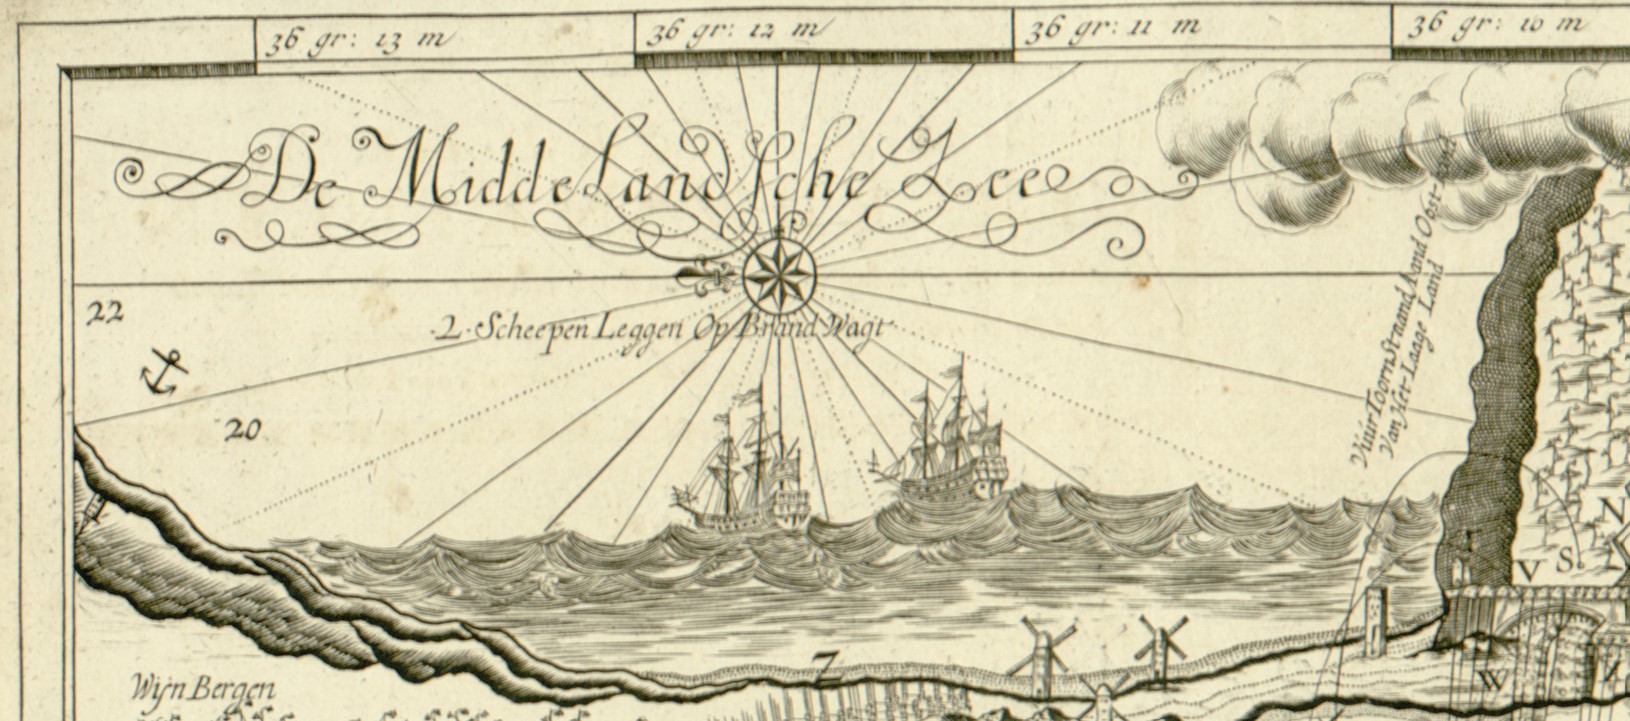 36 gr: 13 m
36 gr: 12 m
36 gr: 11 m
36 gr: 10 m
De Middelandsche Zee
22
2 Scheepen Leggen Op Brand Wagt
20
Vuur Toorn Straand Aand Oost
Van Het Laage Land
N
V S.
Z
W
Wijn Bergen